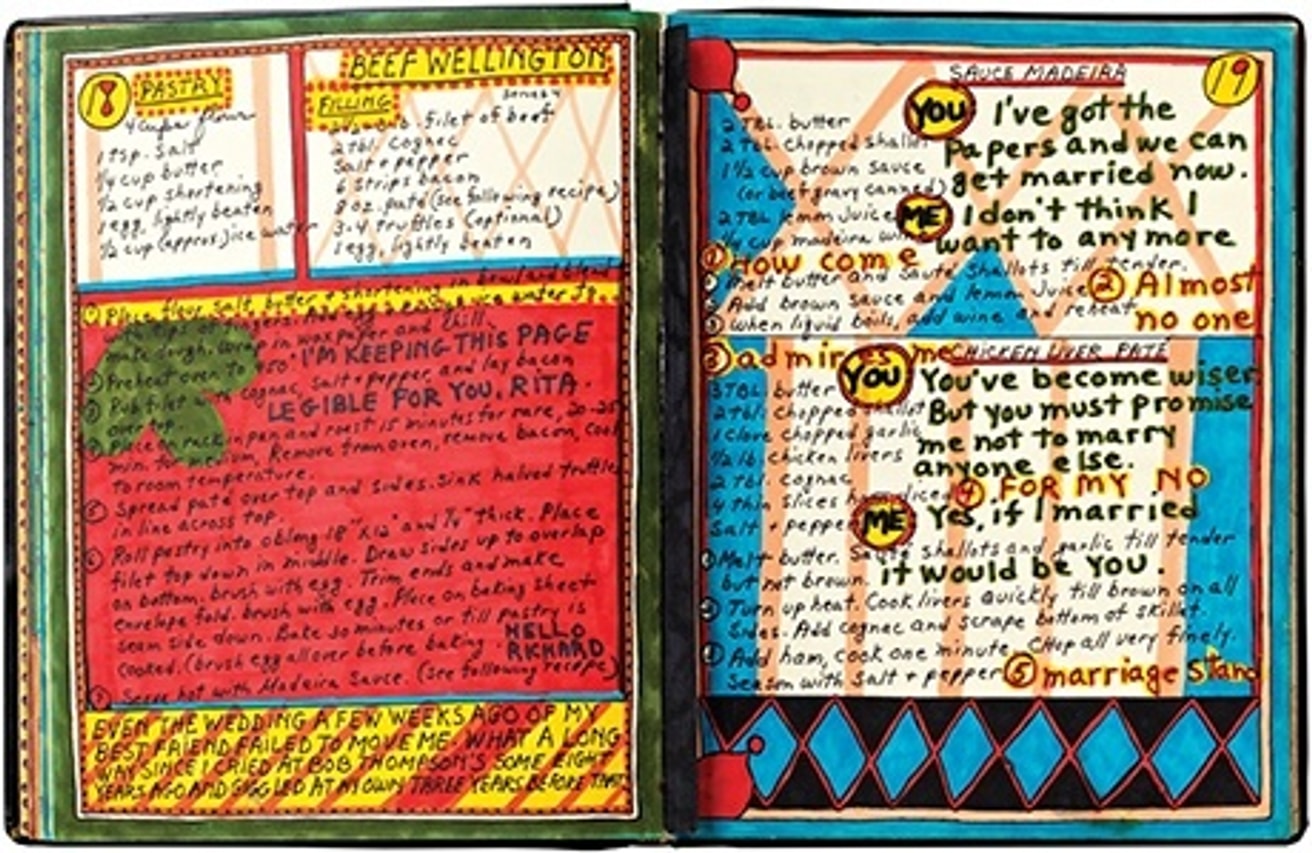 18
PASTRY
4 cups flour
1 tsp. salt
1/4 cup butter
1/2 cup shortening
1 egg, lightly beaten
1/2 cup (approx.) ice water
BEEF WELLINGTON
serves 4
FILLING
lb. filet of beef
2 tbl. cognac
Salt + pepper
6 strips bacon
8 oz. paté (see following recipe)
3-4 truffles (optional)
1 egg, lightly beaten
① Place flour, salt, butter + shortening in bowl and blend
with tips of fingers. Add egg and ice water to
make dough. Wrap in wax paper and chill.
I'M KEEPING THIS PAGE
② Preheat oven to 450°.
③ Rub filet with cognac, salt + pepper, and lay bacon
LEGIBLE FOR YOU, RITA.
over top.
Place on rack in pan and roast 15 minutes for rare, 20-25
min. for medium. Remove from oven, remove bacon, cool
to room temperature.
⑤ Spread paté over top and sides. Sink halved truffles
in line across top.
⑥ Roll pastry into oblong 18" x 12" and 1/4" thick. Place
filet top down in middle. Draw sides up to overlap
on bottom. brush with egg. Trim ends and make
envelope fold. brush with egg. Place on baking sheet
seam side down. Bake 30 minutes or till pastry is
cooked. (brush egg all over before baking
HELLO
RICHARD
⑦ Serve hot with Madeira Sauce. (see following recipe)
EVEN THE WEDDING A FEW WEEKS AGO OF MY
BEST FRIEND FAILED TO MOVE ME. WHAT A LONG
WAY SINCE I CRIED AT BOB THOMPSON'S SOME EIGHT
YEARS AGO AND GIGGLED AT MY OWN THREE YEARS BEFORE THAT
SAUCE MADEIRA
19
2 TBL. butter
2 tbl. chopped shallot
1 1/2 cup brown sauce
(or beef gravy canned)
2 TBL lemon juice
1/4 cup madeira wine
YOU I've got the
Papers and we can
get married now.
ME I don't think I
want to any more
① How come
① Melt butter and sauté shallots till tender.
② Add brown sauce and lemon juice
② Almost
③ When liquid boils, add wine and reheat
no one
③ admires me
CHICKEN LIVER PATÉ
3 TBL butter
2 tbl. chopped shallot
1 clove chopped garlic
1/2 lb. chicken livers
2 Tbl. cognac
4 thin slices ham, diced
Salt + pepper
YOU You've become wiser
But you must promise
me not to marry
anyone else.
④ FOR MY NO
ME Yes, if I married
it would be YOU.
① Melt butter. Sauté shallots and garlic till tender
but not brown.
② Turn up heat. Cook livers quickly till brown on all
Sides. Add cognac and scrape bottom of skillet.
③ Add ham, cook one minute. Chop all very finely.
Season with salt + pepper
⑤ marriage stand